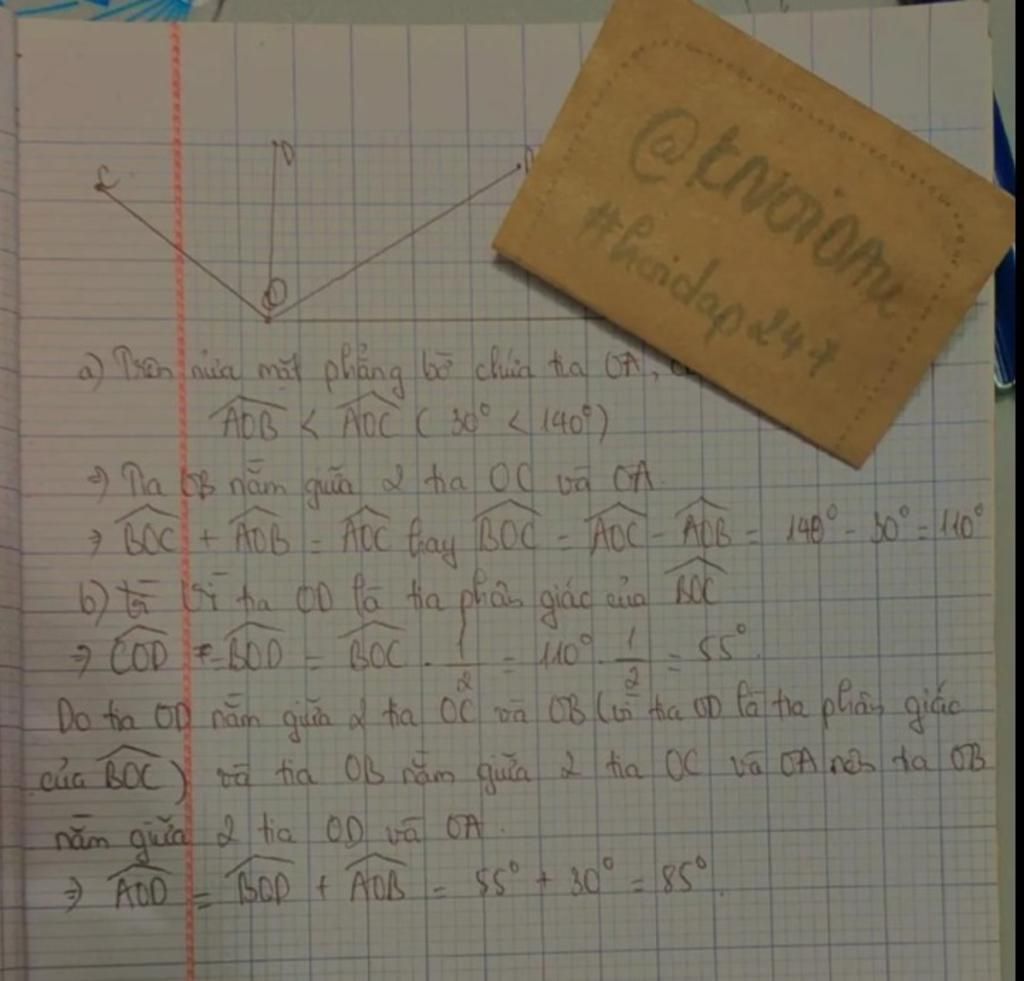 C
D
O
@
#hoidap247
a) Trên nửa mặt phẳng bờ chứa tia OA,
AOB < AOC ( 30° < 140°)
⇒ Tia OB nằm giữa 2 tia OC và OA
⇒ BOC + AOB = AOC hay BOC = AOC - AOB = 140° - 30° = 110°
b) Vì tia OD là tia phân giác của BOC
⇒ COD = BOD = BOC . 1/2 = 110° . 1/2 = 55°
Do tia OD nằm giữa 2 tia OC và OB (vì tia OD là tia phân giác
của BOC) và tia OB nằm giữa 2 tia OC và OA nên tia OB
nằm giữa 2 tia OD và OA.
⇒ AOD = BOD + AOB = 55° + 30° = 85°.